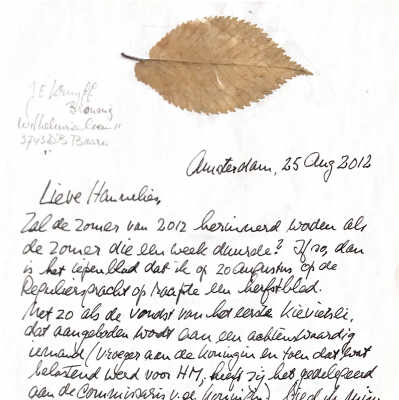 Wilhelminalaan 11
3743 DB Baarn
Amsterdam, 25 Aug 2012
Lieve Hannelien,
Zal de zomer van 2012 herinnerd woden als
de zomer die een week duurde? If so, dan
is het iepenblad dat ik op 20 augustus op de
Reguliersgracht opraapte een herfstblad.
Net zo als de vondst van het eerste kievietsei,
dat aangeboden wordt aan een achtenswaardig
iemand (vroeger aan de Koningin en toen dat
belastend werd voor HM, heeft zij het gedelegeerd
aan de Commissaris v.d. Koningin